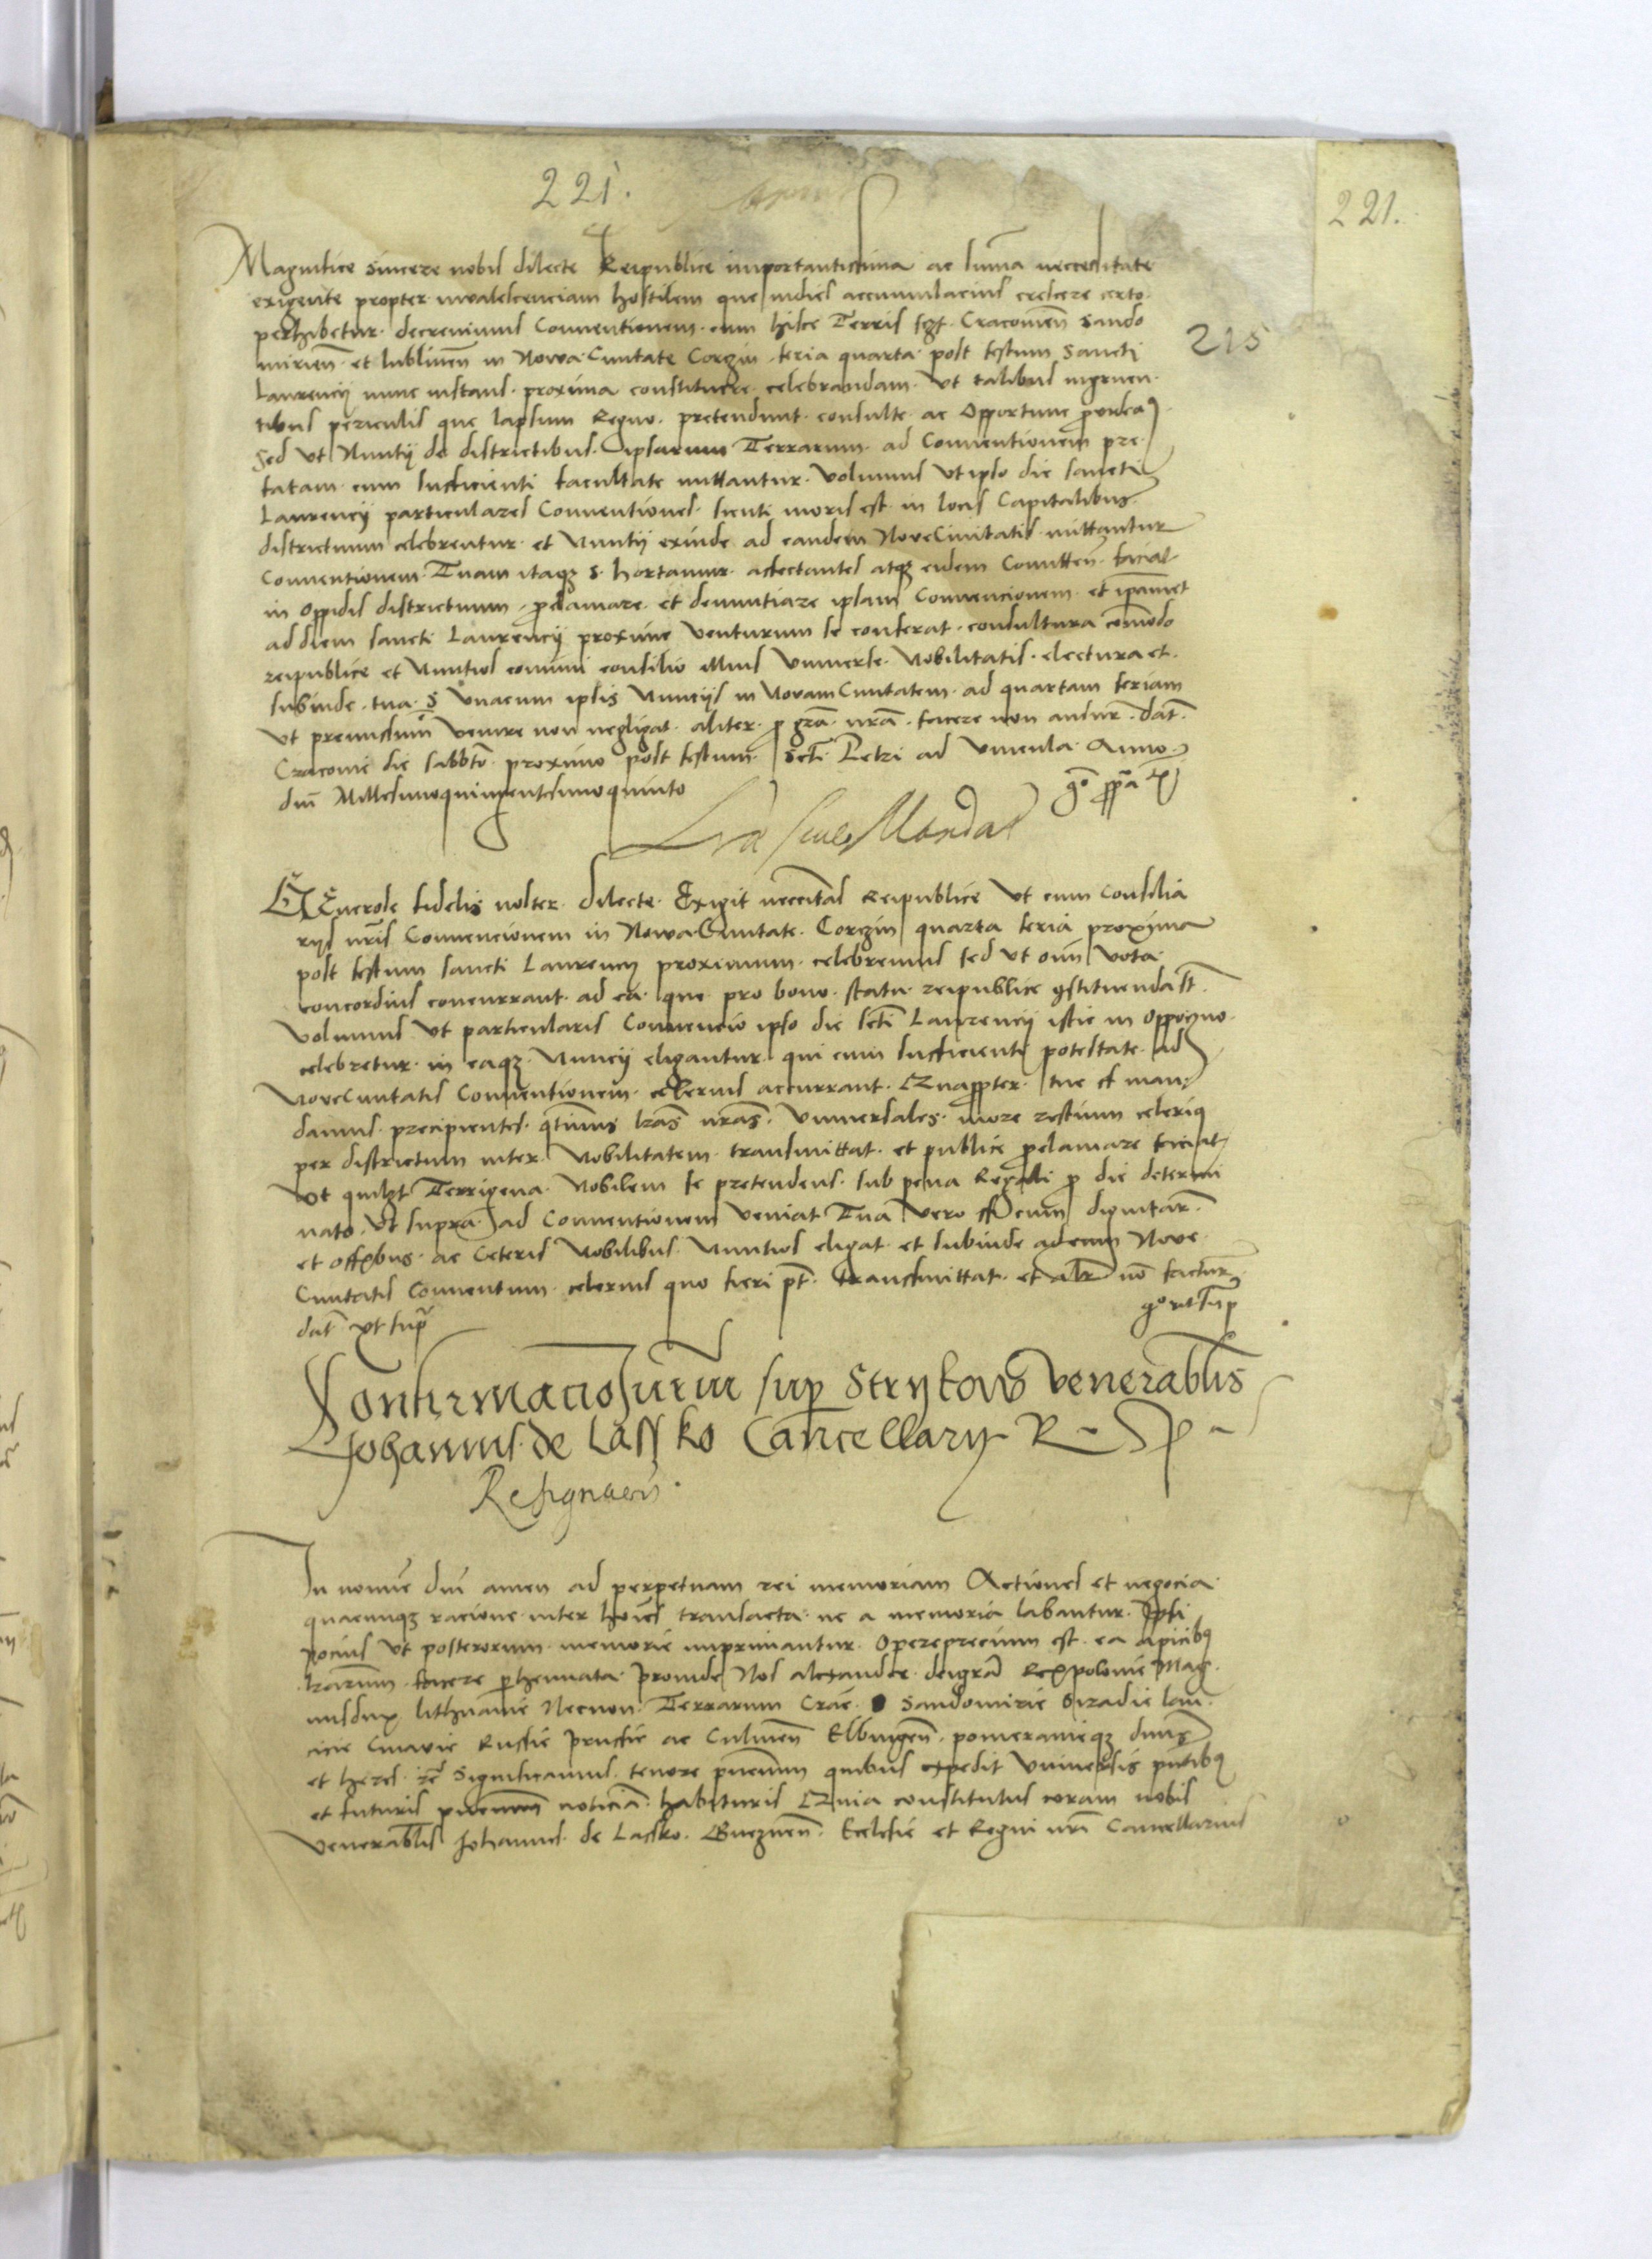 221.
221.
Magnifice sincere nobis dilecte Reipublice importantissima ac suma neccessitate
exigente propter invalescenciam hostilem que indies accumulacius crescere certo
perhibetur. decrevimus Conventionem cum hisce Terris sczt. Cracovien̄ Sando
mirien̄ et lublinen̄ in Nowa Civitate Corczin feria quarta post festum Sancti
215
Laurencij nunc instans proxima constituere celebrandam. Ut talibus ingruen
tibus periculis que lapsum Regno pretendunt consulte ac Opportune
Sed ut Nuntij de districtibus ipsarum Terrarum ad Conventionem pre
fatam cum sufficienti facultate mittantur. Volumus Ut ipso die sancti
Laurencij particulares Conventiones sicuti moris est in locis Capitalibus
districtuum celebrentur et Nuntij exinde ad eandem Nove Civitatis mittantur
Conventionem. Tuam itaqz S. hortamur affectantes atqz eidem Committen̄ faciat
in Oppidis districtuum proclamare et denuntiare ipsam Convencionem et
ad diem sancti Laurencij proxime Venturum se conferat consultura comodo
reipublice et Nuntios comuni consilio illius Universe Nobilitatis electura et
subinde tua S Unacum ipsis Nuncijs in Novam Civitatem ad quartam feriam
Ut premissum Venire non negligat aliter p gra nra facere non datt
Cracovie die sabbto proximo post festum Scti Petri ad Vincula Anno
dni Millesimoquingentesimoquinto
Generose fidelis noster dilecte. Exigit neccitas Reipublice Ut cum Consilia
rijs nris Convencionem in Nowa Civitate Corczin quarta feria proxima
post festum sancti Laurencij proximum celebremus sed ut oim vota
concordius concurrant ad ea que pro bono statu reipublice gstituenda st
Volumus Ut particularis Convencio ipso die scti Laurencij istic in Oppoczno
celebretur in eaqz Nuncij eligantur qui cum sufficienti potestate ad
Nove Civitatis Conventionem celerius accurrant. Quappter tue f man
damus precipientes qtinus lras nras Universales more restium celeriq
per districtum inter Nobilitatem transmittat et publice pclamare faciat
Ut quilzt Terrigena Nobilem se pretendens sub pena Regali p die determi
nato Ut supra ad Conventionem Veniat Tua Vero f cum dignitar
et offibus ac Ceteris Nobilibus Nuntios eligat et subinde adeum Nove
Civitatis Conventum celerius quo fieri pt transmittat et alr no factur
dat ut supr
Confirmacio Jurium sup Strykow Venerablis
Johannis de Lassko Cancellarij R P
Resignacio
In nomine dni amen ad perpetuam rei memoriam Actiones et negocia
quacumqz racione inter hoies transacta ne a memoria labantur Ipsi
pocius Ut posterorum memorie imprimantur Opereprecium est ea apicibq
lrarum facere phennata Proinde Nos alexander deigra Rex polonie Mag
nusdux lithuanie Necnon Terrarum Crac Sandomirie Siradie lan
cicie Cuiavie Russie Prussie ac Culmen̄ Elbingen̄ pomeranieqz dns
et heres zc Significamus tenore pntium quibus expedit Universis pntibq
et futuris noticia habituris Quia constitutus coram nobis
Venerablis Johannes de Lassko Gneznen̄ Ecclesie et Regni nri Cancellarius